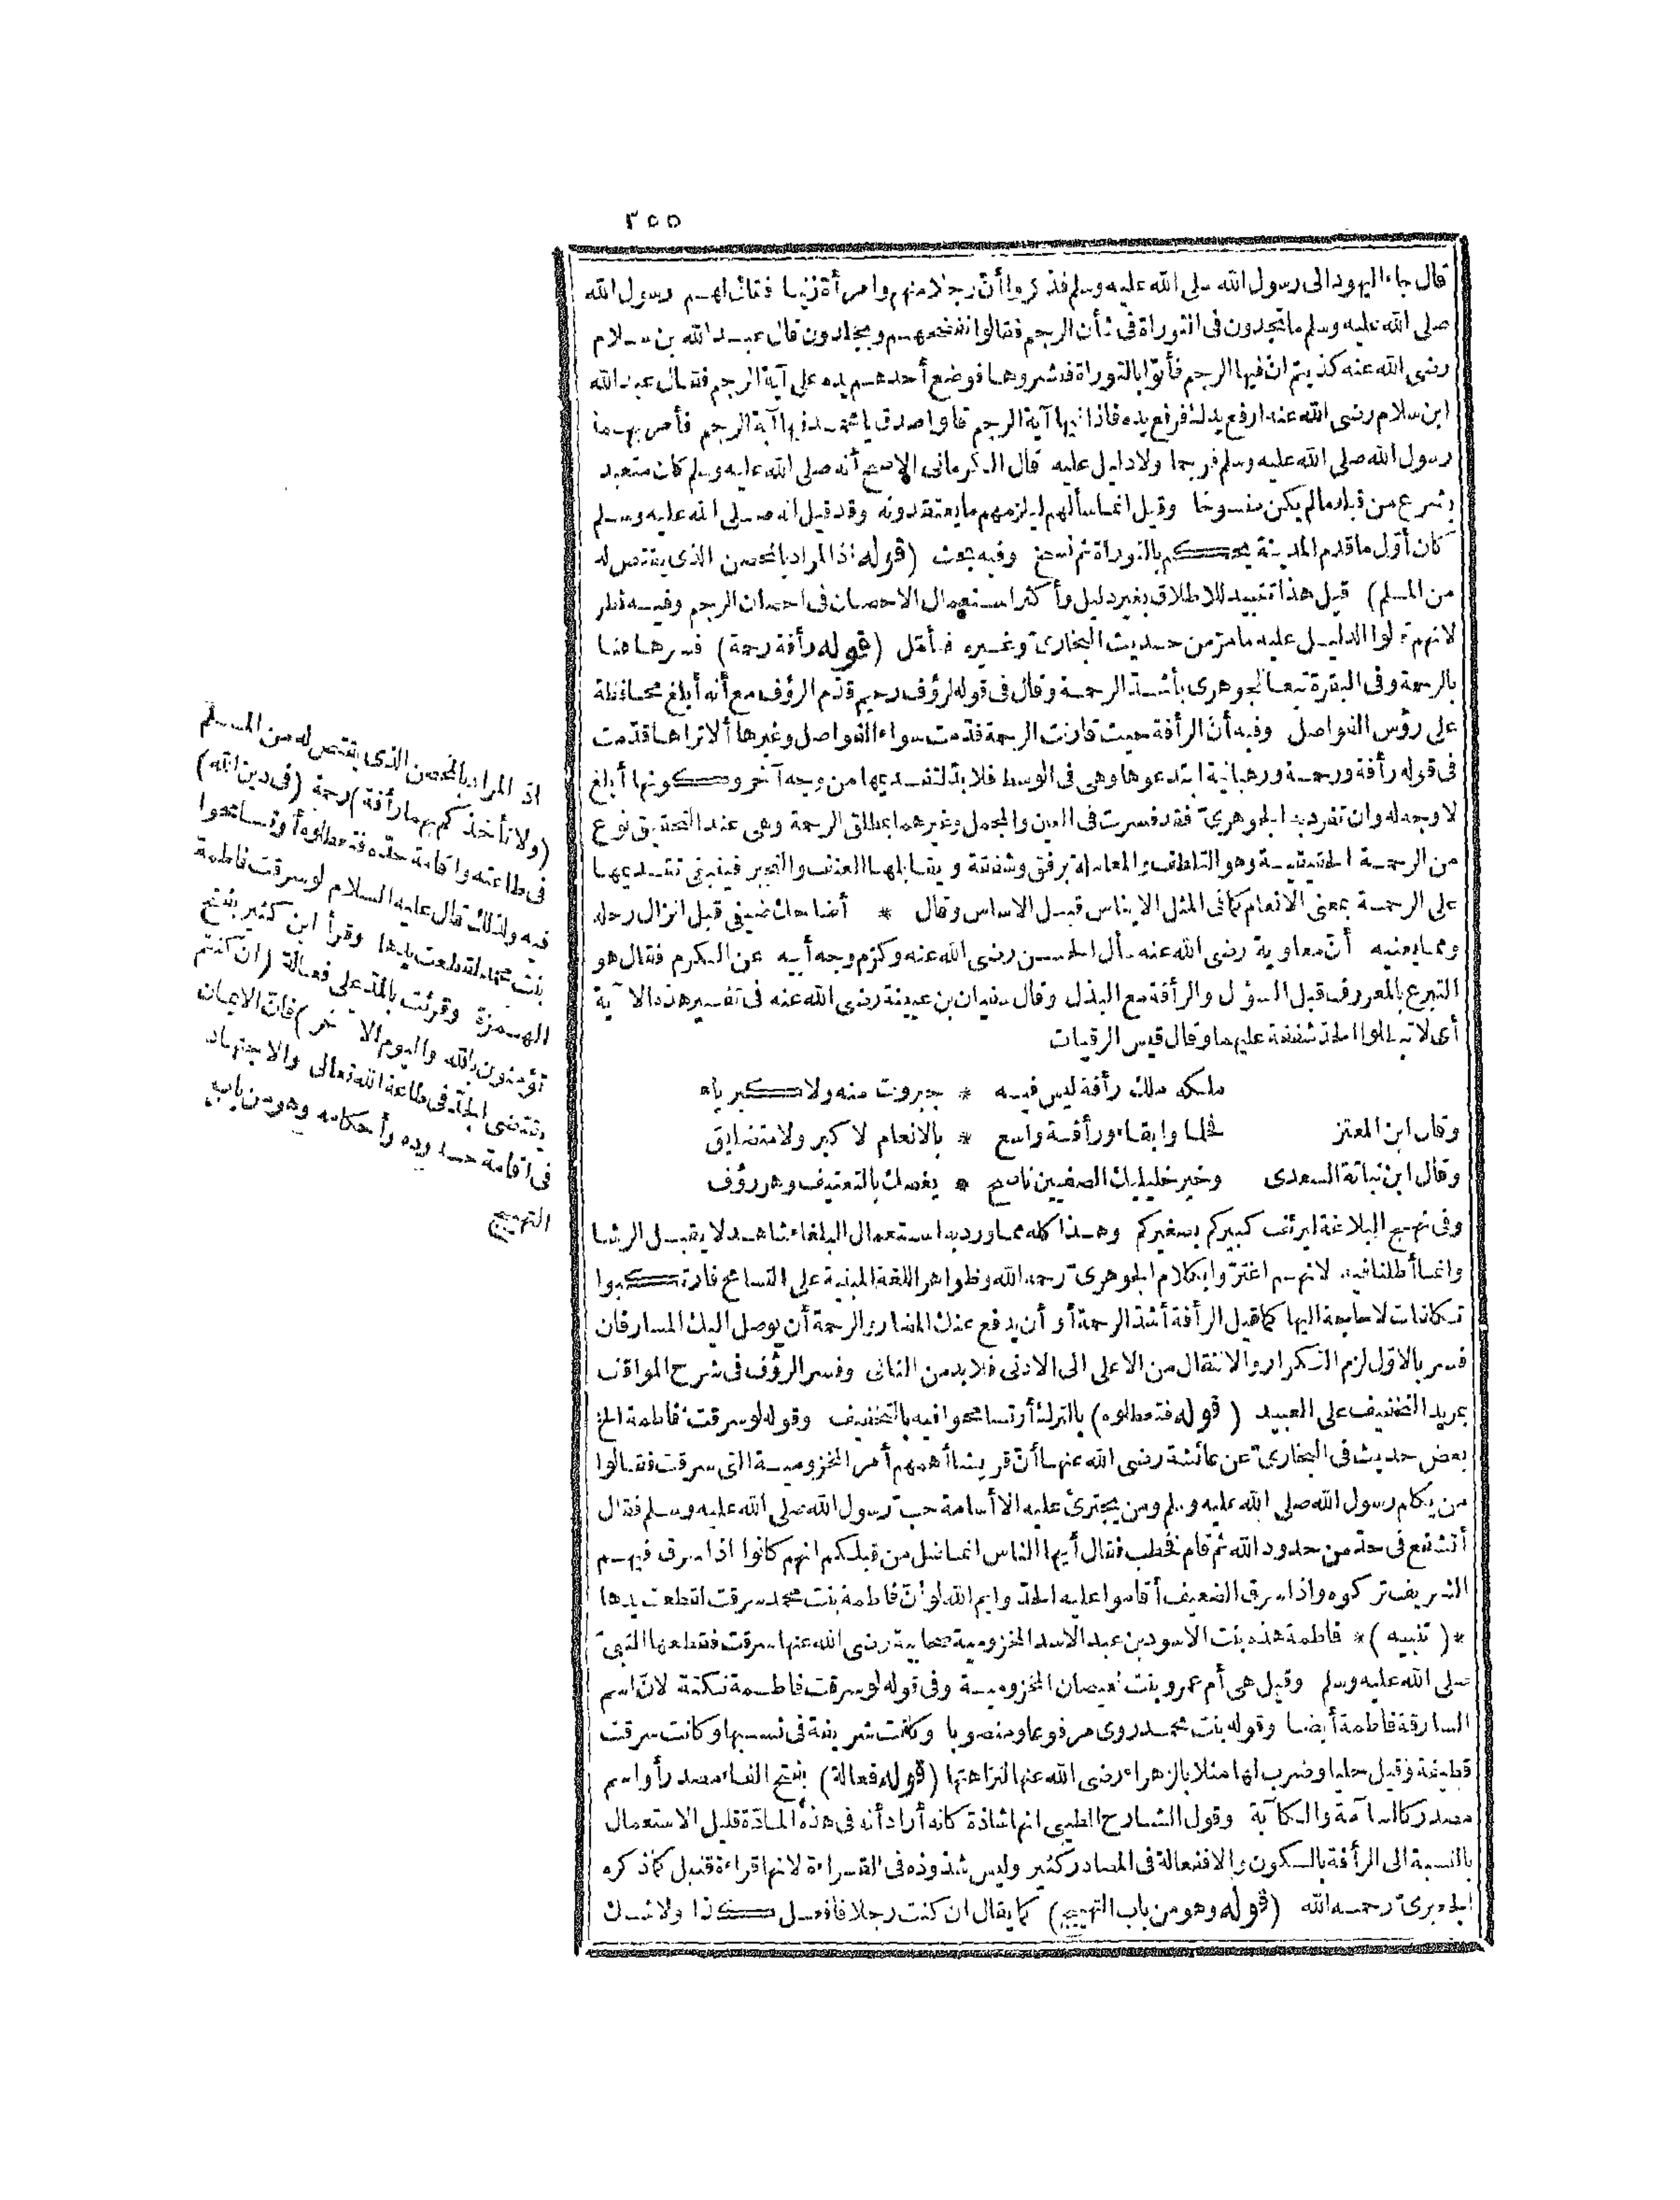 ٣٥٥
قال جاء اليهود الى رسول الله صلى الله عليه وسلم فذكروا أنّ رجلا منهم وامرأة زنيا فقال لهم رسول الله
صلى الله عليه وسلم ما تجدون فى التوراة فى شأن الرجم فقالوا نفضحهم ويجلدون قال عبد الله بن سلام
رضى الله عنه كذبتم انّ فيها الرجم فأتوا بالتوراة فنشروها فوضع أحدهم يده على آية الرجم فقال عبد الله
ابن سلام رضى الله عنه ارفع يدك فرفع يده فاذا فيها آية الرجم قالوا صدق يا محمد فيها آية الرجم فأمر بهما
رسول الله صلى الله عليه وسلم فرجما ولا دليل عليه قال الكرمانى الاصح أنه صلى الله عليه وسلم كان متعبد
بشرع من قبله ما لم يكن منسوخا وقيل انما سألهم ليلزمهم ما يعتقدونه وقد قيل انه صلى الله عليه وسلم
كان أوّل ما قدم المدينة يحكم بالتوراة ثم نسخ وفيه بحث (قوله اذا المراد بالمحصن الذى يقتص له
من المسلم) قيل هذا تقييد للاطلاق بغير دليل وأكثر استعمال الاحصان فى احصان الرجم وفيه نظر
لانهم قالوا الدليل عليه ما مرّ من حديث البخارىّ وغيره فتأمّل (قوله رأفة رحمة) فسرها هنا
بالرحمة وفى البقرة تبعا للجوهرى بأشدّ الرحمة وقال فى قوله لرؤف رحيم قدّم الرؤف مع أنه أبلغ محافظة
على رؤس الفواصل وفيه أنّ الرأفة حيث قارنت الرحمة قدّمت سواء الفواصل وغيرها ألا تراها قدّمت
فى قوله رأفة ورحمة ورهبانية ابتدعوها وهى فى الوسط فلا بدّ لتقديمها من وجه آخر وكونها أبلغ
لا وجه له وان تفرد به الجوهرىّ فقد فسرت فى العين والمجمل وغيرهما بمطلق الرحمة وهى عند التحقيق نوع
من الرحمة الحقيقية وهو التلطف والمعاملة برفق وشفقة ويقابلها العنف والتجبر فينبغى تقديمها
على الرحمة بمعنى الانعام كما فى المثل الايناس قبل الابساس وقال * أضاحك ضيفى قبل انزال رحله
ومما يعنيه أنّ معاوية رضى الله عنه سأل الحسن رضى الله عنه وكرّم وجه أبيه عن الكرم فقال هو
التبرع بالمعروف قبل السؤل والرأفة مع البذل وقال سفيان بن عيينة رضى الله عنه فى تفسير هذه الآية
أى لا تبطلوا الحدّ شفقة عليهما وقال قيس الرقيات
ملكه ملك رأفة ليس فيه * جبروت منه ولا كبرياء
وقال ابن المعتز فحلما وابقاء ورأفة واسع * بالانعام لا كبر ولا متضايق
وقال ابن نباتة السعدى وخير خليليك الصفيين ناصح * يغصك بالتعنيف وهو رؤف
وفى نهج البلاغة ليرأف كبيركم بصغيركم وهذا كله مما ورد به استعمال البلغاء شاهد لا يقبل الرشا
وانما أطلنا فيه لانهم اغترّوا بكلام الجوهرىّ رحمه الله وظواهر اللغة المبنية على التسامح فارتكبوا
تكلفات لا حاجة اليها كما قيل الرأفة أشدّ الرحمة أو أن يدفع عنك المضار والرحمة أن يوصل اليك المسار فان
فسر بالاوّل لزم التكرار والانتقال من الاعلى الى الادنى فلا بد من الثانى وفسر الرؤف فى شرح المواقف
بمريد التخفيف على العبيد (قوله فتعطلوه) بالترك أو تسامحوا فيه بالتخفيف وقوله لو سرقت فاطمة الخ
بعض حديث فى البخارىّ عن عائشة رضى الله عنها أنّ قريشا أهمهم أمر المخزومية التى سرقت فقالوا
من يكلم رسول الله صلى الله عليه وسلم ومن يجترئ عليه الا أسامة حبّ رسول الله صلى الله عليه وسلم فقال
أتشفع فى حدّ من حدود الله ثم قام فخطب فقال أيها الناس انما ضل من قبلكم انهم كانوا اذا سرق فيهم
الشريف تركوه واذا سرق الضعيف أقاموا عليه الحدّ وايم الله لو أنّ فاطمة بنت محمد سرقت لقطعت يدها
*(تنبيه)* فاطمة هذه بنت الاسود بن عبد الاسد المخزومية صحابية رضى الله عنها سرقت فقطعها النبىّ
صلى الله عليه وسلم وقيل هى أم عمرو بنت سفيان المخزومية وفى قوله لو سرقت فاطمة نكتة لانّ اسم
السارقة فاطمة أيضا وقوله بنت محمد روى مرفوعا ومنصوبا وكانت شريفة فى نسبها وكانت سرقت
قطيفة وقيل حليا وضرب لها مثلا بالزهراء رضى الله عنها لنزاهتها (قوله فعالة) بفتح الفاء مصدر أو اسم
مصدر كالسآمة والكآبة وقول الشارح الطيبى انها شاذة كانه أراد أنه فى هذه المادّة قليل الاستعمال
بالنسبة الى الرأفة بالسكون والا ففعالة فى المصادر كثير وليس شذوذه فى القراءة لانها قراءة قنبل كما ذكره
الجعبرىّ رحمه الله (قوله وهو من باب التهييج) كما يقال ان كنت رجلا فافعل كذا ولا شك
اذ المراد بالمحصن الذى يقتص له من المسلم
(ولا تأخذكم بهما رأفة) رحمة (فى دين الله)
فى طاعته واقامة حدّه فتعطلوه أو تسامحوا
فيه ولذلك قال عليه السلام لو سرقت فاطمة
بنت محمد لقطعت يدها وقرأ ابن كثير بفتح
الهمزة وقرئت بالمدّ على فعالة (ان كنتم
تؤمنون بالله واليوم الآخر) فانّ الايمان
يقتضى الجدّ فى طاعة الله تعالى والاجتهاد
فى اقامة حدوده وأحكامه وهو من باب
التهييج